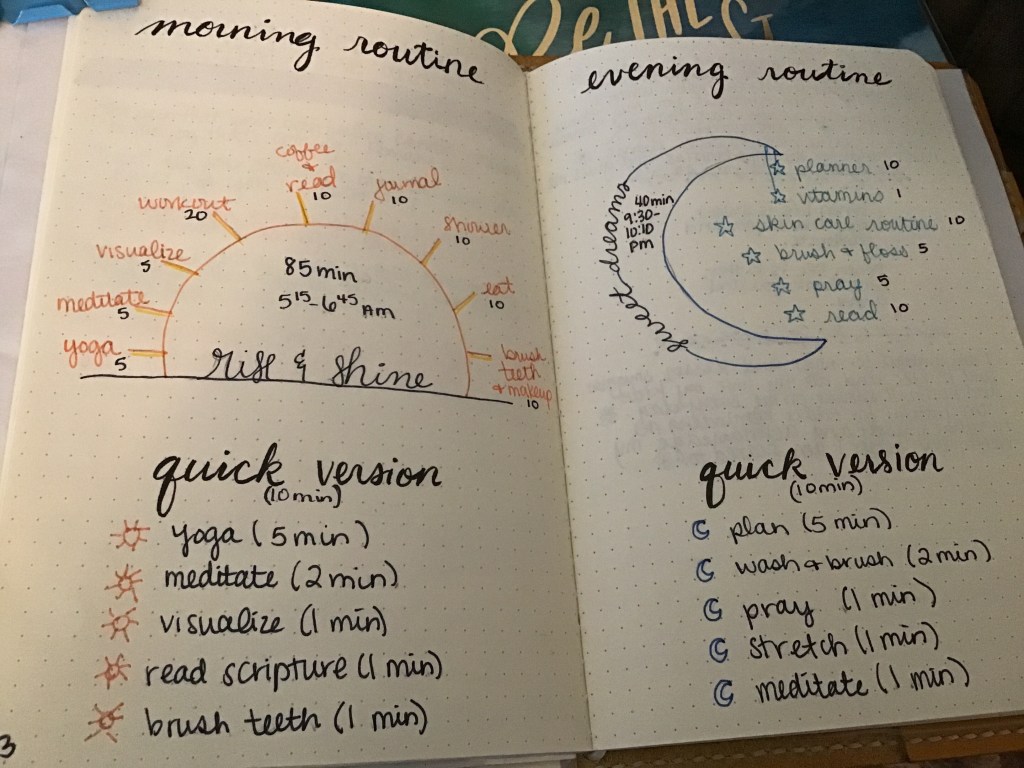 morning routine
coffee
&
read
10
journal
10
workout
20
shower
10
visualize
5
eat
10
meditate
5
yoga
5
brush
teeth
& makeup
10
85 min
5 15 - 6 45 AM
rise & shine
quick version
(10 min)
yoga (5 min)
meditate (2 min)
visualize (1 min)
read scripture (1 min)
brush teeth (1 min)
3
evening routine
sweet dreams
40 min
9:30-
10:10
pm
planner 10
vitamins 1
skin care routine 10
brush & floss 5
pray 5
read 10
quick version
(10 min)
plan (5 min)
wash & brush (2 min)
pray (1 min)
stretch (1 min)
meditate (1 min)